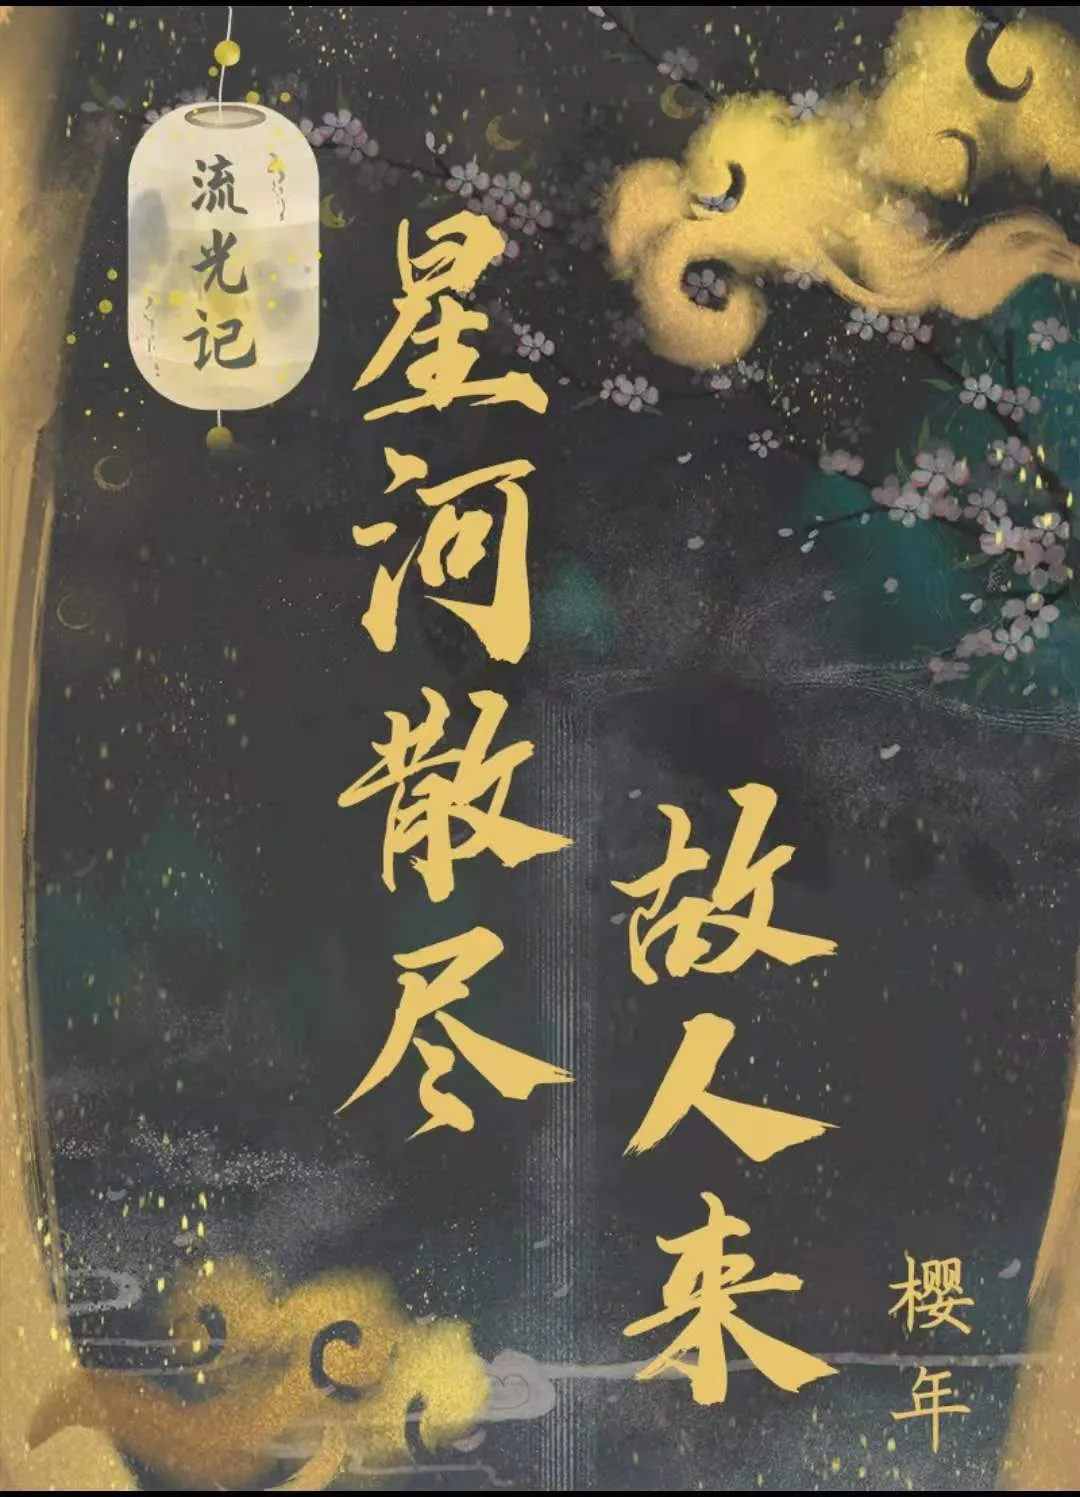 流光记
星河散尽
故人来
樱年